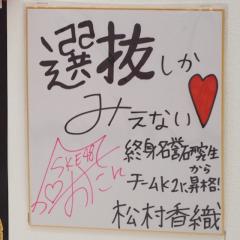 選抜しか
みえない
終身名誉研究生
から
チームK2に昇格!
松村香織
SKE48